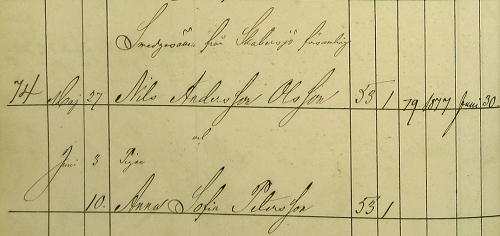 Smedgesällen från Skabersjö församling
74 Maj 27 Nils Andersson Olsson 53 1 79 1877 Juni 30
och
Juni 3 Pigan
10. Anna Sofia Petersson 53 1